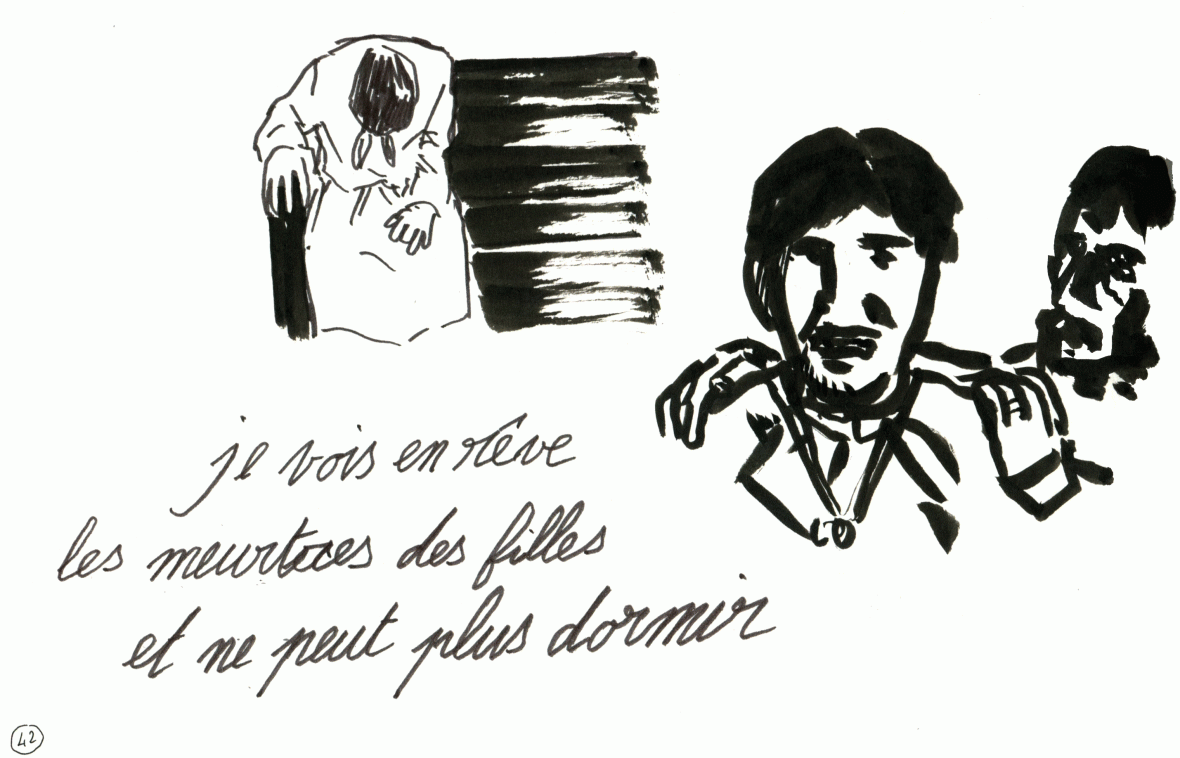 je vois en rêve
les meurtres des filles
et ne peut plus dormir
42